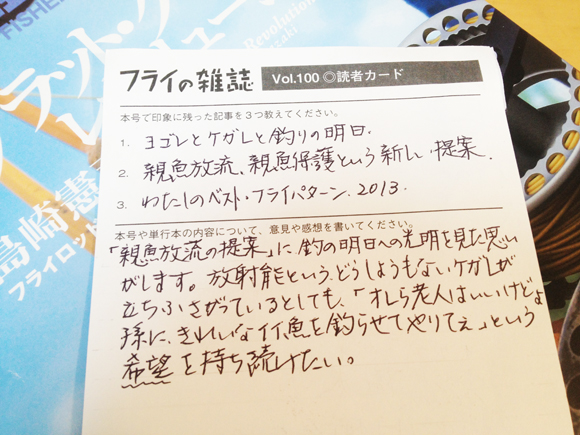 FISHE
ラット・グ
レ
ュー
Revolution
zaki
島崎憲
フライロット
フライの雑誌 Vol.100◎読者カード
本号で印象に残った記事を3つ教えてください。
1. ヨゴレとケガレと釣りの明日.
2. 親魚放流、親魚保護という新しい提案.
3. わたしのベスト・フライパターン. 2013.
本号や単行本の内容について、意見や感想を書いてください。
「親魚放流の提案」に、釣の明日への光明を見た思い
がします。放射能という、どうしようもないケガレが
立ちふさがっているとしても、「オレら老人はいいけどよ
孫に、きれいなイイ魚を釣らせてやりてぇ」という
希望を持ち続けたい。